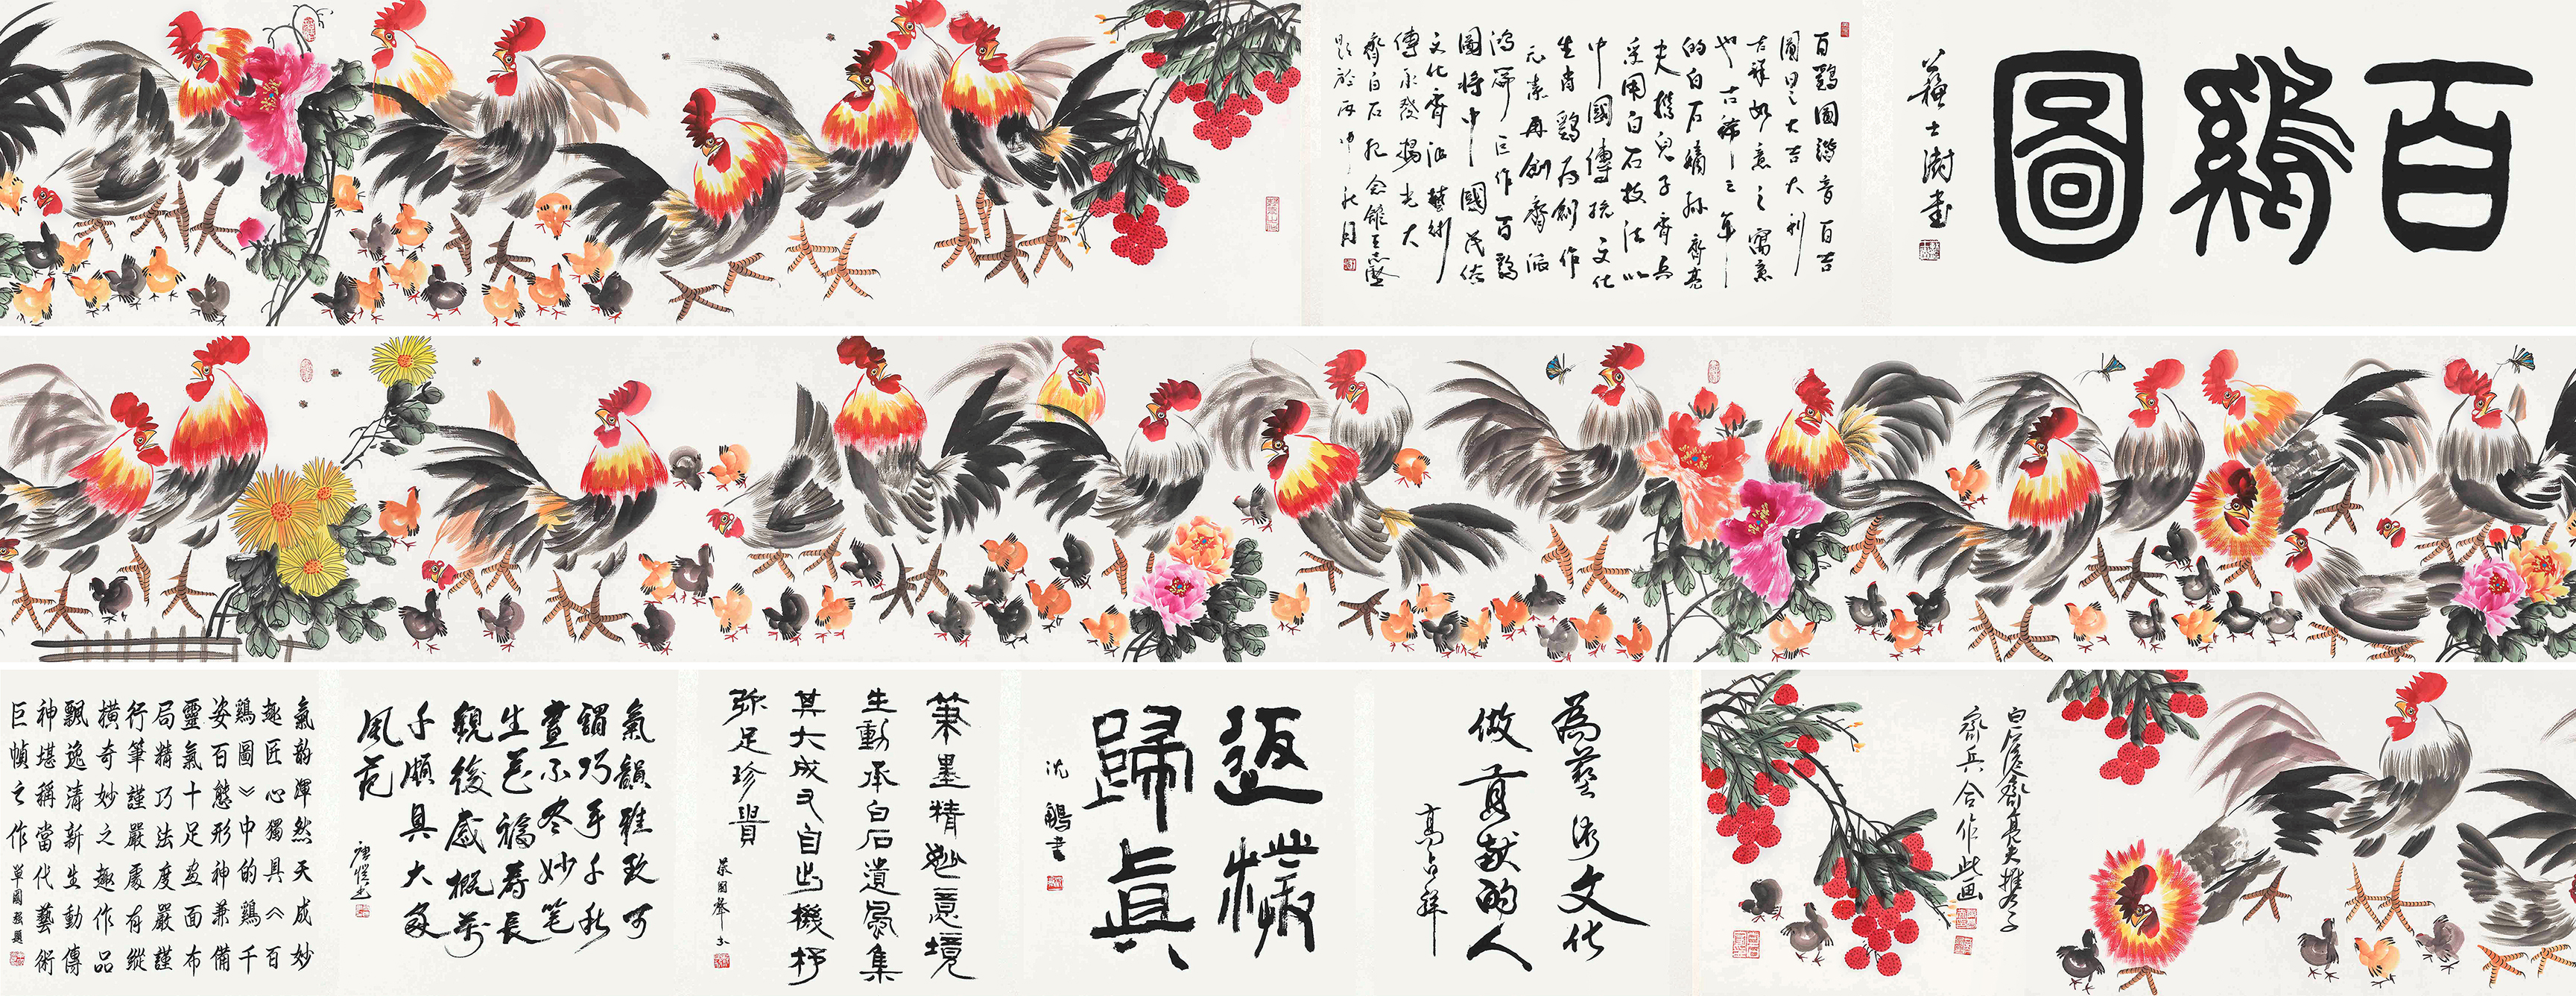 百鷄圖
蘇士澍書
百鷄圖諧音百吉
圖曰之大吉大利
吉祥如意之寓意
也古稀十三年
的白石嫡孫齊亮
夫攜兒子齊兵
采用白石技法以
中國傳統文化
生肖鷄为创作
元素再创齊派
鸿篇巨作百鷄
圖将中國民俗
文化齊派藝術
傳承發揚光大
齊白石紀念館王志堅
題於丙申秋月
白石後裔齊亮夫攜子
齊兵合作此画
為藝術文化
做貢献的人
高占祥
返樸
歸真
沈鵬書
筆墨精妙意境
生動承白石遺風集
其大成又自出機杼
弥足珍貴
蔡國聲書
氣韻雅致可
謂巧手千秋
畫不尽妙笔
生花福壽長
觀後感慨万
千頗具大家
風范
氣韵渾然天成妙
趣匠心獨具《百
鷄圖》中的鷄千
姿百態形神兼備
靈氣十足畫面布
局精巧法度嚴謹
行筆謹嚴處有縱
橫奇妙之趣作品
飄逸清新生動傳
神堪稱當代藝術
巨幀之作 單國強題